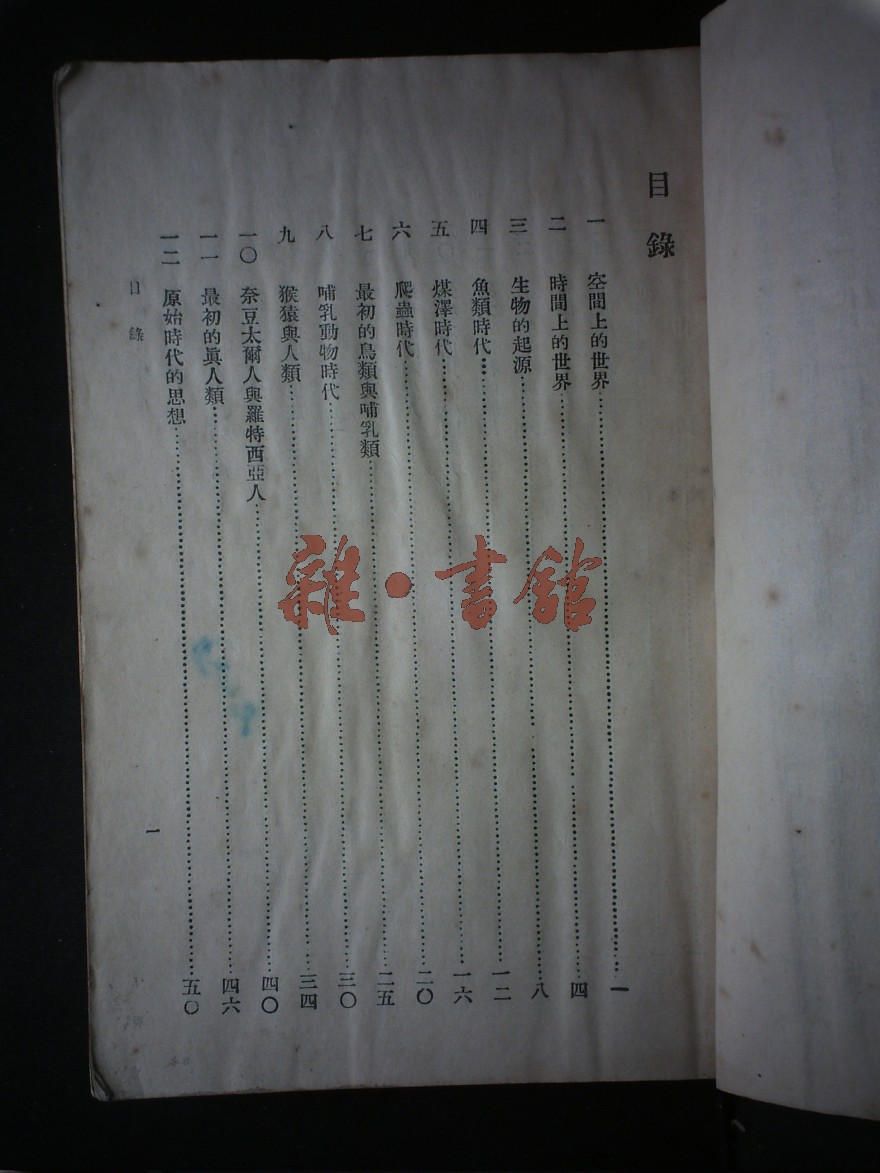 目錄
一 空間上的世界…………一
二 時間上的世界…………四
三 生物的起源…………八
四 魚類時代…………一二
五 煤澤時代…………一六
六 爬蟲時代…………二〇
七 最初的鳥類與哺乳類…………二五
八 哺乳動物時代…………三〇
九 猴猿與人類…………三四
一〇 奈豆太爾人與羅特西亞人…………四〇
一一 最初的眞人類…………四六
一二 原始時代的思想…………五〇
目錄
一
雜·書館